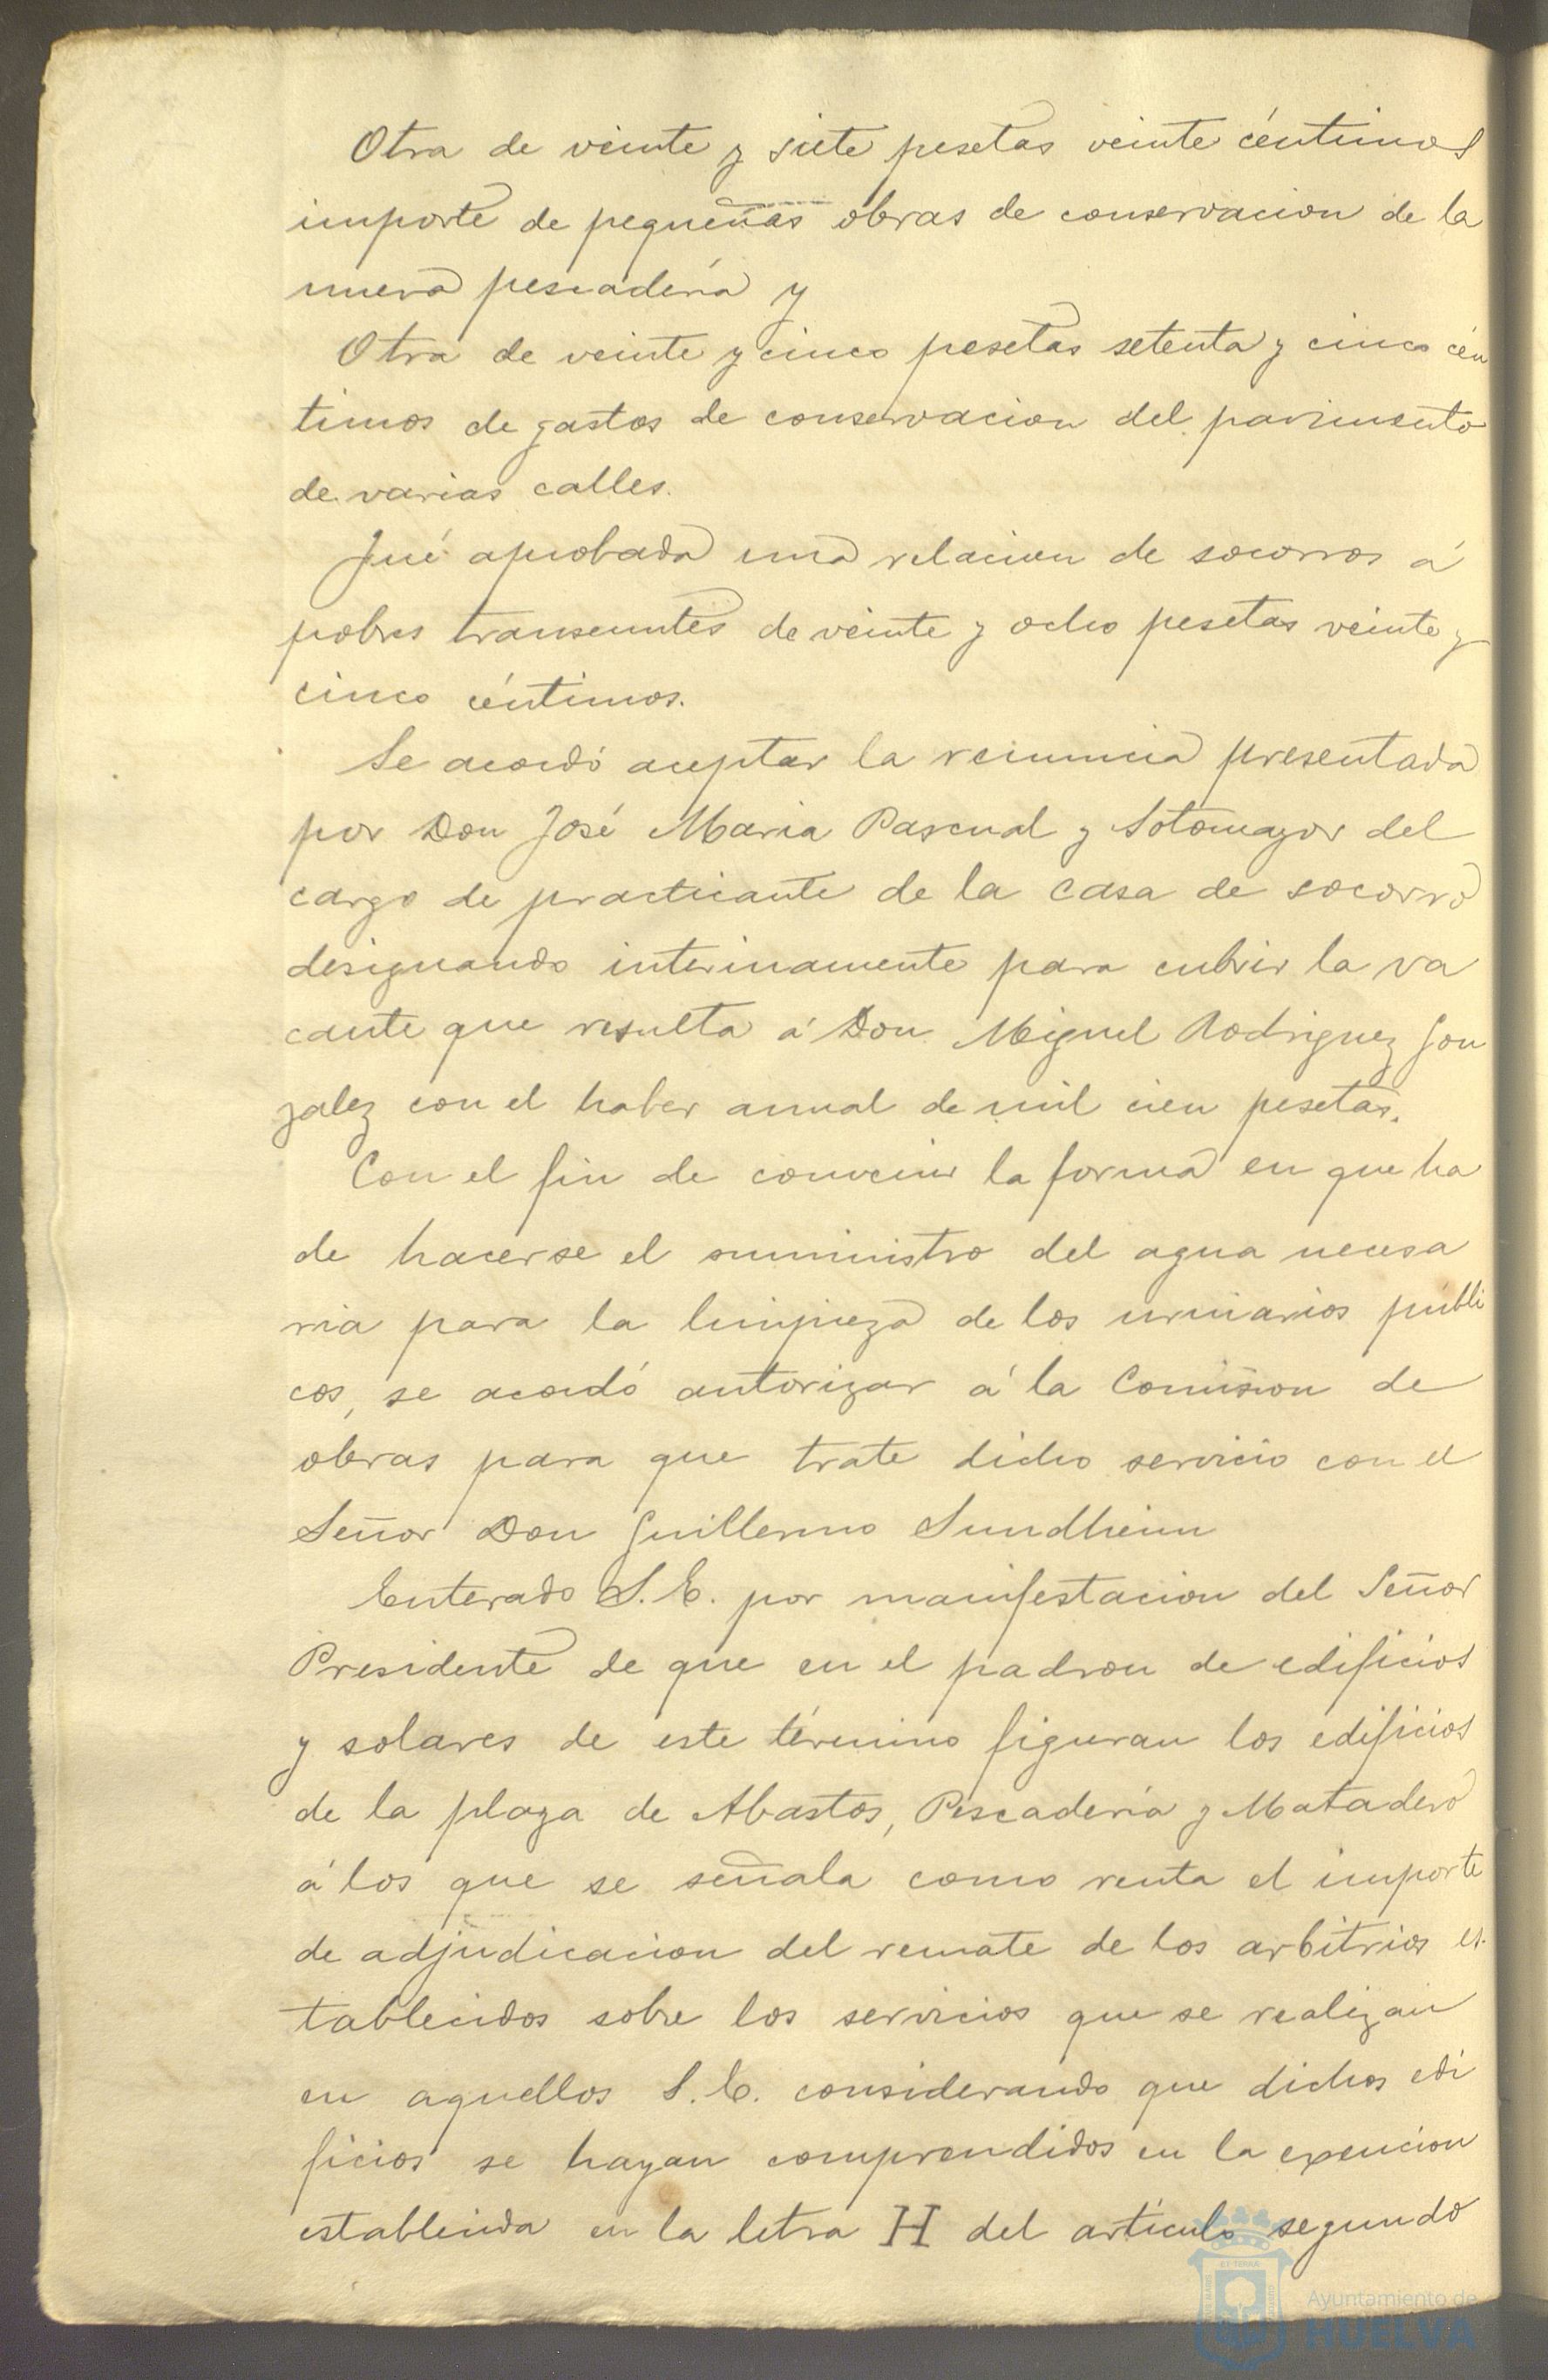 Otra de veinte y siete pesetas veinte céntimos
importe de pequeñas obras de conservacion de la
nueva pescadería y
Otra de veinte y cinco pesetas setenta y cinco cén
timos de gastos de conservacion del pavimento
de varias calles.
Fué aprobada una relacion de socorros á
pobres transeuntes de veinte y ocho pesetas veinte y
cinco céntimos.
Se acordó aceptar la renuncia presentada
por Don José Maria Pascual y Sotomayor del
cargo de practicante de la casa de socorro
designando interinamente para cubrir la va
cante que resulta á Don Miguel Rodriguez Gon
zalez con el haber anual de mil cien pesetas.
Con el fin de convenir la forma en que ha
de hacerse el suministro del agua necesa
ria para la limpieza de los urinarios públi
cos, se acordó autorizar á la Comision de
obras para que trate dicho servicio con el
Señor Don Guillermo Sundheim
Enterado S.E. por manifestacion del Señor
Presidente de que en el padron de edificios
y solares de este término figuran los edificios
de la plaza de Abastos, Pescadería y Matadero
á los que se señala como renta el importe
de adjudicacion del remate de los arbitrios es-
tablecidos sobre los servicios que se realizan
en aquellos S.E. considerando que dichos edi
ficios se hayan comprendidos en la exencion
establecida en la letra H del artículo segundo
Ayuntamiento de
HUELVA